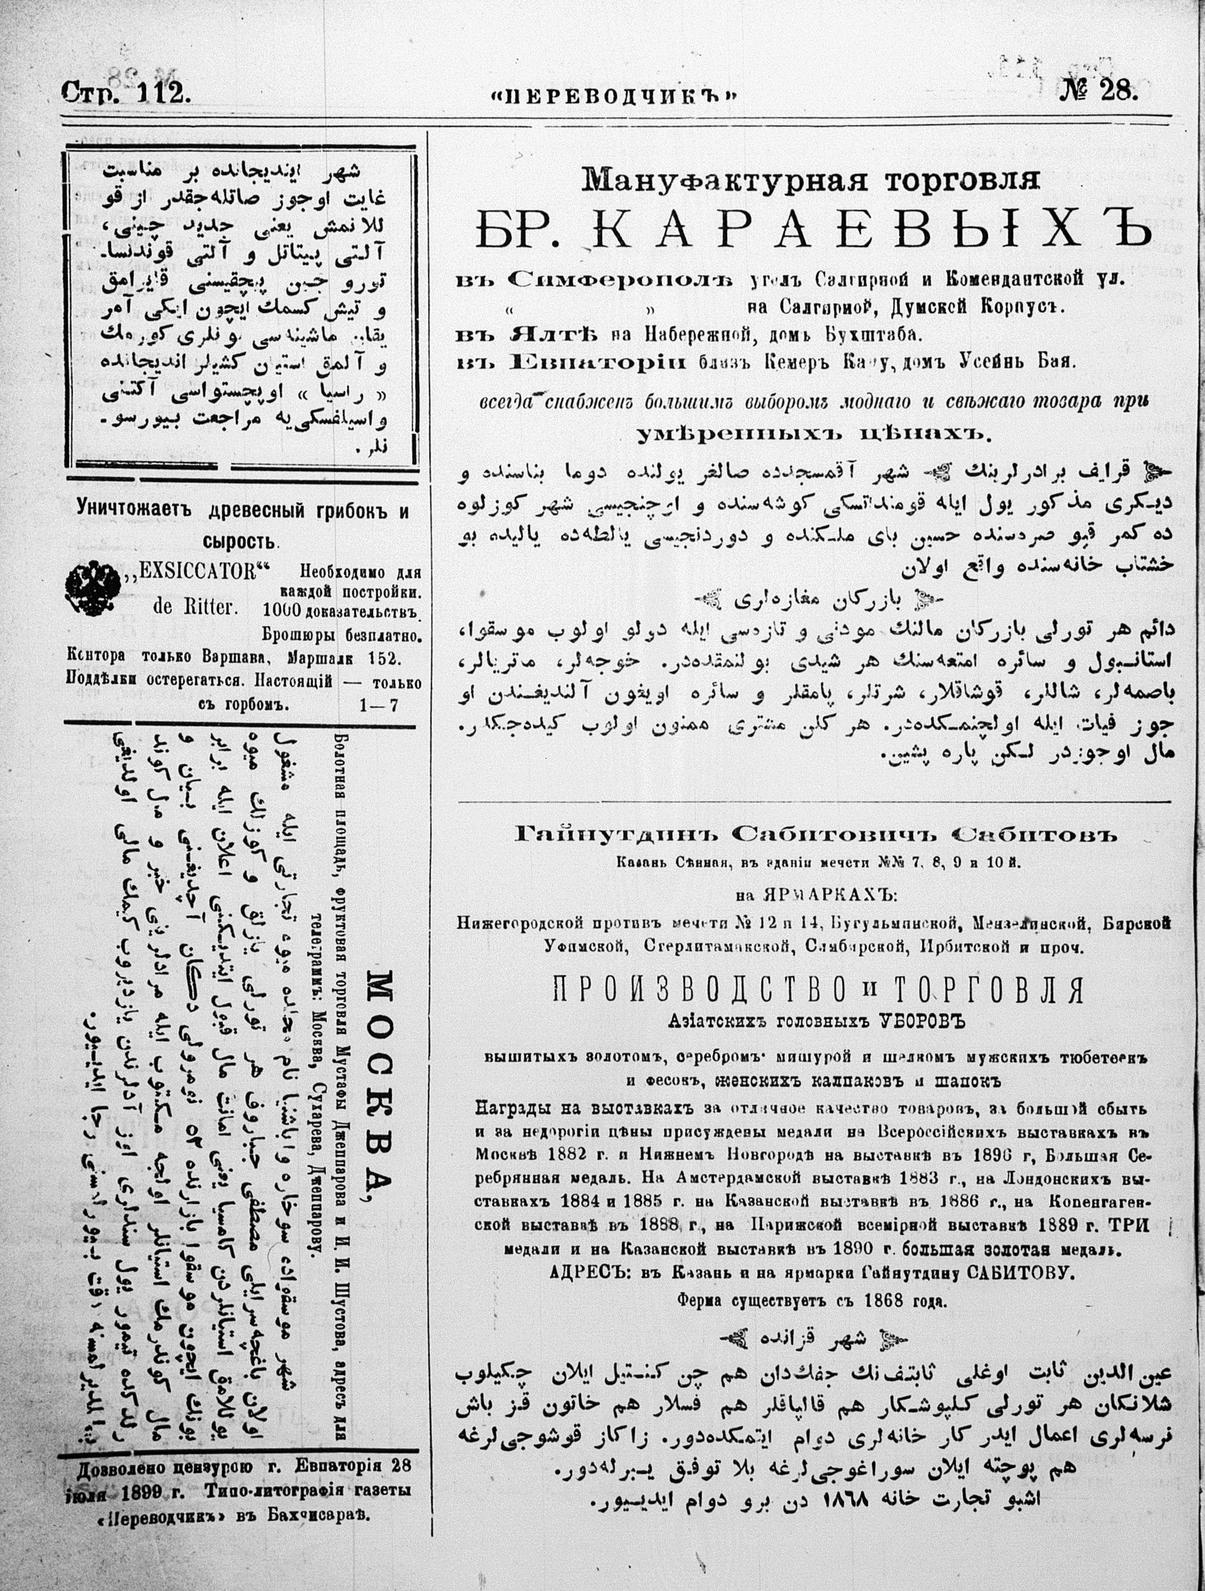 Стр. 112.
«ПЕРЕВОДЧИКЪ»
№ 28.
شهر اینديجانده بر مناسبت
غايت اوجوز صاتله‌جقدر از قو
للانمش يعنی جديد چينی،
آلتی پيتاتل و آلتی قوندنسا-
تورو جبن پيچقيسنی قايرامق
و تيش كسمك ايچون ايكی آمر
يقان ماشينه‌سی بونلری كورمك
و آلمق استيان كشيلر انديجانده
« راسيا » اوپچستواسی آكتنی
واسيلفسكی‌يه مراجعت بيورسو-
نلر.
Уничтожаетъ древесный грибокъ и
сырость.
„EXSICCATOR“ Необходимо для
каждой постройки.
de Ritter. 1000 доказательствъ.
Брошюры безплатно.
Контора только Варшава, Маршалк 152.
Поддѣлки остерегаться. Настоящій — только
съ горбомъ. 1—7
МОСКВА,
Болотная площадь, фруктовая торговля Мустафы Джеппарова и И. И. Шустова, адресъ для
телеграммъ: Москва, Сухарева, Джеппарову.
شهر موسقواده سوخاره واباشنيا نام محلده ميوه تجارتی ايله مشغول
اولان باغچه‌سرايلی مصطفی جباروف هر تورلی يازلق و كوزلك ميوه
يوللامق استيانلردن كاميسيا يونی امانت مال قبول ايتديكنی اعلان ايله برابر
بونك ايچون موسقوا بازارنده ٥٣ نومرولی دكان آچديغنی بيان و
مال كوندرمك استيانلر اولجه مكتوب ايله مرادلرينی خبر و مال كوند
رلدكده تيمور يول سندلری اوز آدلرندن يازديروب كيمك مالی اولديغی
بيلديرلمسنه دقت بيورلمسنی رجا ايديور.
Дозволено цензурою г. Евпаторія 28
іюля 1899 г. Типо-литографія газеты
«Переводчикъ» въ Бахчисараѣ.
Мануфактурная торговля
БР. КАРАЕВЫХЪ
въ Симферополѣ уголъ Салгирной и Комендантской ул.
« » на Салгирной, Думской Корпусъ.
въ Ялтѣ на Набережной, домъ Бухштаба.
въ Евпаторіи близъ Кемеръ Капу, домъ Усейнъ Бая.
всегда снабженъ большимъ выборомъ моднаго и свѣжаго товара при
умѣренныхъ цѣнахъ.
قرايف برادرلرينك شهر آقمسجدده صالغر يولنده دوما بناسنده و
ديكری مذكور يول ايله قومندانتسكی كوشه‌سنده و اوچنجيسی شهر كوزلوه
ده كمر قپو صره‌سنده حسين بای ملكنده و دوردنجيسی يالطه‌ده ياليده بو
خشتاب خانه‌سنده واقع اولان
بازركان مغازه‌لری
دائم هر تورلی بازركان مالنك مودنی و تازه‌سی ايله دولو اولوب موسقوا،
استانبول و سائره امتعه‌سنك هر شيدی بولنمقده‌در. خوجه‌لر، ماتريالر،
باصمه‌لر، شاللر، قوشاقلار، شرتلر، پامقلر و سائره اويغون آلنديغندن او
جوز فيات ايله اولچنمكده‌در. هر كلن مشتری ممنون اولوب كيده‌جكدر.
مال اوجوزدر لكن پاره پشين.
Гайнутдинъ Сабитовичъ Сабитовъ
Казань Сѣнная, въ зданіи мечети №№ 7, 8, 9 и 10 й.
на ЯРМАРКАХЪ:
Нижегородской противъ мечети № 12 и 14, Бугульминской, Мензелинской, Бирской
Уфимской, Стерлитамакской, Симбирской, Ирбитской и проч.
ПРОИЗВОДСТВО и ТОРГОВЛЯ
Азіатскихъ головныхъ УБОРОВЪ
вышитыхъ золотомъ, серебромъ мишурой и шелкомъ мужскихъ тюбетеекъ
и фесокъ, женскихъ калпаковъ и шапокъ
Награды на выставкахъ за отличное качество товаровъ, за большой сбытъ
и за недорогіи цѣны присуждены медали на Всероссійскихъ выставкахъ въ
Москвѣ 1882 г. и Нижнемъ Новгородѣ на выставкѣ въ 1896 г, Большая Се-
ребрянная медаль. На Амстердамской выставкѣ 1883 г., на Лондонскихъ вы-
ставкахъ 1884 и 1885 г. на Казанской выставкѣ въ 1886 г., на Копенгаген-
ской выставкѣ въ 1888 г., на Парижской всемірной выставкѣ 1889 г. ТРИ
медали и на Казанской выставкѣ въ 1890 г. большая золотая медаль.
АДРЕСЪ: въ Казань и на ярмарки Гайнутдину САБИТОВУ.
Ферма существуетъ съ 1868 года.
شهر قزانده
عين الدين ثابت اوغلی ثابتفنك جفكدان هم چن كنتيل ايلان چكيلوب
شلانكان هر تورلی كلپوشكار هم قالپاقلر هم فسلار هم خاتون قز باش
نرسه‌لری اعمال ايدر كار خانه‌لری دوام ايتمكده‌دور. زاكاز قوشوجی‌لرغه
هم پوچته ايلان سوراغوجی‌لرغه بلا توفق يبرله‌دور.
اشبو تجارت خانه ١٨٦٨ دن برو دوام ايديور.